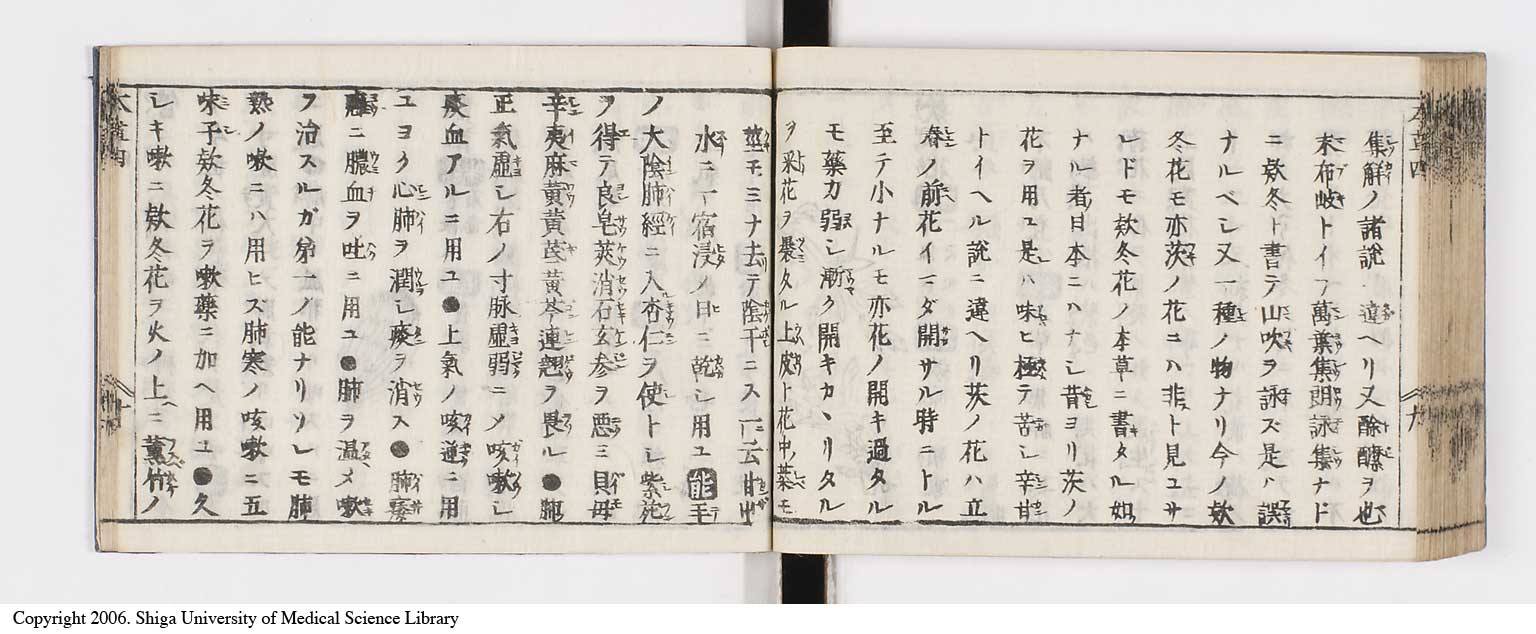 集解ノ諸説 違ヘリ又酴醾ヲ也
末布岐トイフ萬葉集朗詠集ナド
ニ欵冬ト書テ山吹ヲ詠ズ是ハ誤
ナルベシ又一種ノ物ナリ今ノ欵
冬花モ亦茨ノ花ニハ非ト見ユサ
レドモ欵冬花ノ本草ニ書タル如
ナル者日本ニハナシ昔ヨリ茨ノ
花ヲ用ユ是ハ味ヒ極テ苦シ辛甘
トイヘル説ニ違ヘリ茨ノ花ハ立
春ノ前花イマダ開サル時ニトル
至テ小ナルモ亦花ノ開キ過タル
モ藥力弱シ漸ク開キカヽリタル
ヲ采花ヲ暴タル上皮ト花中ノ蘂モ
莖モミナ去テ陰干ニス一ニ云甘艸
水ニ一宿浸ノ日ニ乾シ用ユ 能 手
ノ大陰肺經ニ入杏仁ヲ使トシ紫菀
ヲ得テ良皂莢消石玄参ヲ悪ミ貝母
辛夷麻黄黄茋黄芩連翹ヲ畏ル●肺
正氣虚シ右ノ寸脉虚弱ニメ咳嗽シ
痰血アルニ用ユ●上氣ノ咳逆ニ用
ユヨク心肺ヲ潤シ痰ヲ消ス●肺痿
ニ膿血ヲ吐ニ用ユ●肺ヲ温メ嗽
ヲ治スルガ第一ノ能ナリソレモ肺
熱ノ嗽ニハ用ヒズ肺寒ノ咳嗽ニ五
味子欵冬花ヲ嗽藥ニ加ヘ用ユ●久
シキ嗽ニ欵冬花ヲ火ノ上ニ薫竹ノ
Copyright 2006. Shiga University of Medical Science Library